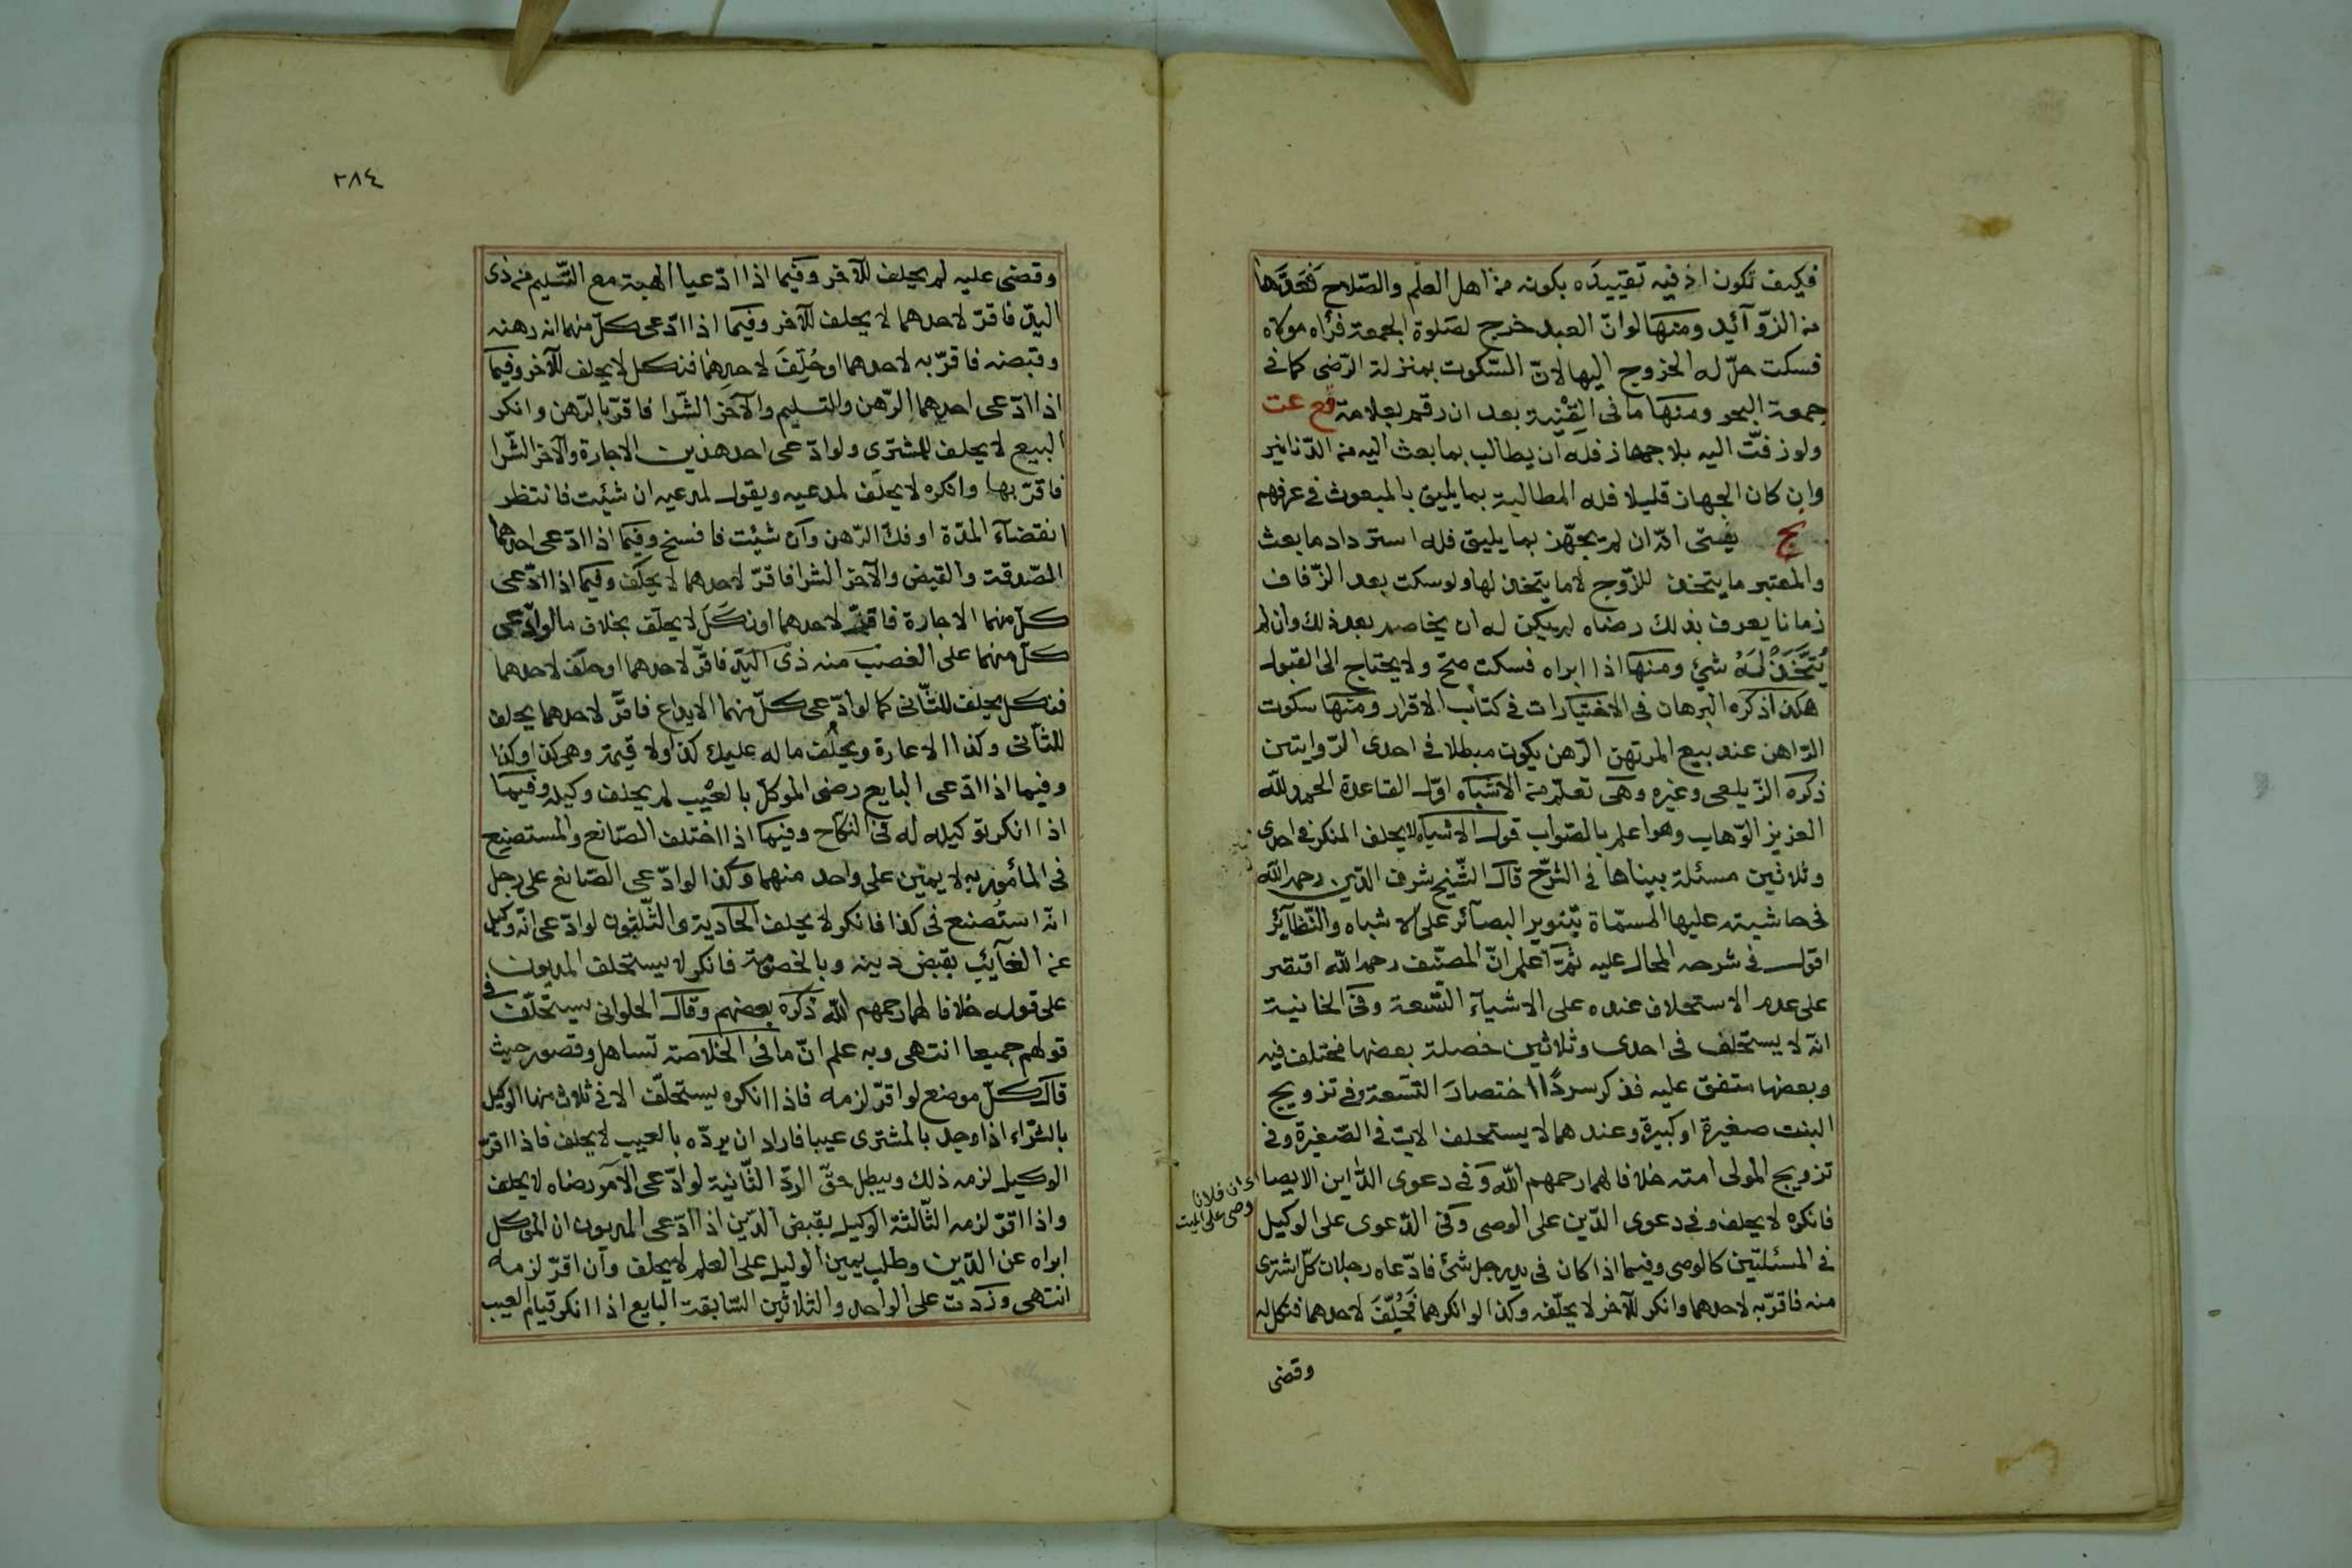 فكيف تكون اذ فيه تقييده بكونه من اهل العلم والصّلاح فَعَدَّها
من الزّوآئد ومنها لو انّ العبد خرج لصلوة الجمعة فرأه مولاه
فسكت حلّ له الخروج اليها لانّ السّكوت بمنزلة الرّضى كما في
جمعة البحر ومنها ما في القِنْية بعد ان رقم بعلامة قع عت
ولو زفّت اليه بلا جهاز فله ان يطالب بما بعث اليه من الدّنانير
وان كان الجهاز قليلا فله المطالبة بما يليق بالمبعوث في عرفهم
نج يفتى انّه ان لم يجهّز بما يليق فله استرداد ما بعث
والمعتبر ما يتخذ للزّوج لا ما يتخذ لها ولو سكت بعد الزّفاف
زمانا يعرف بذلك رضاه لم يكن له ان يخاصم بعد ذلك وان لم
يُتَّخَذْ لَهُ شئ ومنها اذا ابراه فسكت صحّ ولا يحتاج الى القبول
هكذا ذكره البرهان في الاختيارات في كتاب الاقرار ومنها سكوت
الرّاهن عند بيع المرتهن الرّهن يكون مبطلا في احدى الرّوايتين
ذكره الزّيلعى وغيره وهى تعلم من الاشباه اوّل القاعدة الحمد للّه
العزيز الوّهاب وهو اعلم بالصّواب قول الاشباه لا يحلف المنكر في احدى
وثلاثين مسئلة بيناها في الشّرح قال الشّيخ شرف الدّين رحمه اللّه
في حاشيته عليها المسمّاة بتنوير البصآئر على الاشباه والنّظآئر
اقول في شرحه المحال عليه ثمّ اعلم انّ المصنّف رحمه اللّه اقتصر
على عدم الاستحلاف عنده على الاشيآء التّسعة وفي الخانية
انّه لا يستحلف في احدى وثلاثين خصلة بعضها مختلف فيه
وبعضها متفق عليه فذكر سردًا اختصارَ التّسعة وفي تزويج
البنت صغيرة او كبيرة وعندهما لا يستحلف الاب في الصّغيرة وفي
تزويج المولى امته خلافا لهما رحمهم اللّه وفي دعوى الدّاين الايصا
اى ان فلانا
وصى على الميت
فانكره لا يحلف وفي دعوى الدّين على الوصى وفي الدّعوى على الوكيل
في المسئلتين كالوصى وفيما اذا كان في يد رجل شئ فادّعاه رجلان كلّ اشترى
منه فاقرّ به لاحدهما وانكر للآخر لا يحلّفه وكذا لو انكرهما فَحُلِّفَ لاحدهما فنكل له
وقضى
٢٨٤
وقضى عليه لم يحلف للآخر وفيما اذا ادّعيا الهبة مع التّسليم من ذى
اليدّ فاقرّ لاحدهما لا يحلف للآخر وفيما اذا ادّعى كلّ منهما انه رهنه
وقبضه فاقرّ به لاحدهما او حُلِّفَ لاحدِهما فنكل لا يحلف للآخر وفيما
اذا ادّعى احدهما الرّهن والتسليم والآخر الشّرا فاقرّ بالرّهن وانكر
البيع لا يحلف للمشترى ولو ادّعى احد هذين الاجارة والآخر الشّرا
فاقرّ بها وانكره لا يحلّف لمدعيه ويقول لمدعيه ان شئت فانتظر
انقضآء المدّة او فكّ الرّهن وان شئت فافسخ وفيما اذا ادّعى احدهما
الصّدقة والقبض والآخر الشرا فاقرّ لاحدهما لا يحلّف وفيما اذا ادّعى
كلّ منهما الاجارة فاقرّ لاحدهما او نَكَلَ لا يحلّف بخلاف ما لو ادّعى
كلّ منهما على الغصب منه ذى اليدّ فاقرّ لاحدهما او حلّف لاحدهما
فنكل يحلف للثّانى كما لو ادّعى كلّ منهما الايداع فاقرّ لاحدهما يحلف
للثّانى وكذا الاعارة ويحلُف ما له عليك كذا ولا قيمته وهى كذا وكذا
وفيما اذا ادّعى البايع رضى الموكّل بالعيْب لم يحلف وكيله وفيما
اذا انكر توكيله له في النكاح وفيما اذا اختلف الصّانع والمستصنِع
في المأمور به لا يمين على واحد منهما وكذا لو ادّعى الصّانع على رجل
انّه استُصنع في كذا فانكر لا يحلف الحادية والثّلثون لو ادّعى انّه وكيل
عن الغآئب بقبض دينه وبالخصومة فانكر لا يستحلف المديون
على قوله خلافا لهما رحمهم اللّه ذكره بعضهم وقال الحلوانى يستحلّف في
قولهم جميعا انتهى وبه علم انّ ما في الخلاصة تساهل وقصور حيث
قال كلّ موضع لو اقرّ لزمه فاذا انكره يستحلّف الا في ثلاث منها الوكيل
بالشّراء اذا وجد بالمشترى عيبا فاراد ان يردّه بالعيب لا يحلف فاذا اقرّ
الوكيل لزمه ذلك ويبطل حقّ الردّ الثّانية لو ادّعى الآمر رضاه لا يحلف
واذا اقرّ لزمه الثّالثة الوكيل بقبض الدّين اذا ادّعى المديون ان الموكل
ابراه عن الدّين وطلب يمين الوكيل على العلم لا يحلف وان اقرّ لزمه
انتهى وزدت على الواحد والثلاثين السّابقة البايع اذا انكر قيام العيب